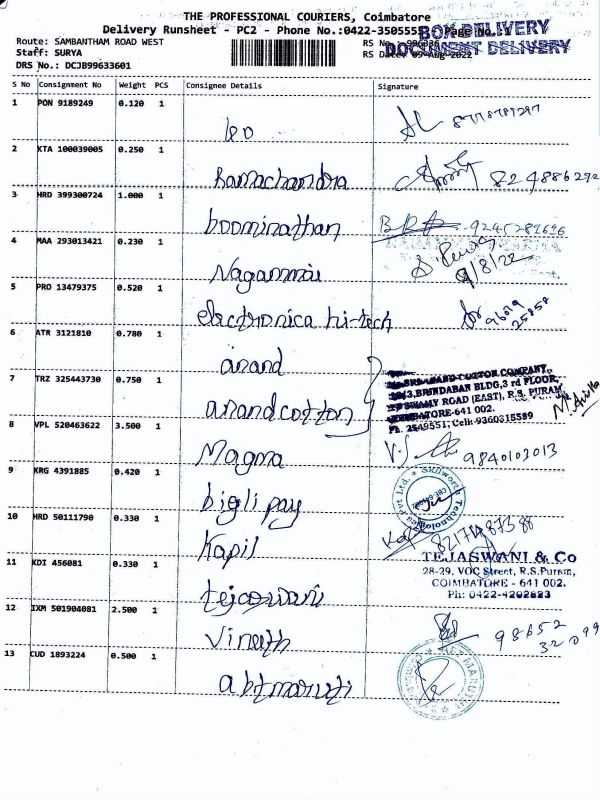 THE PROFESSIONAL COURIERS, Coimbatore
Delivery Runsheet - PC2 - Phone No.:0422-3505555 Page No.1
BOX DELIVERY
DOCUMENT DELIVERY
Route: SAMBANTHAM ROAD WEST
Staff: SURYA
RS Date: 09-Aug-2022
DRS No.: DCJB99633601
S No Consignment No Weight PCS Consignee Details Signature
1 PON 9189249 0.120 1 leo
2 KTA 100039005 0.250 1 Ramachandra
3 HRD 399300724 1.000 1 boominathan
4 MAA 293013421 0.230 1 Nagammai
9/8/22
5 PRO 13479375 0.520 1 electronica hi-tech
96019
25858
6 ATR 3121810 0.780 1 anand
COTTON COMPANY,
BRINDABAN BLDG,3 rd FLOOR,
SWAMY ROAD (EAST), R.S. PURAM,
COIMBATORE-641 002.
Ph: 2549551; Cell:9360315589
7 TRZ 325443730 0.750 1 anand cotton
8 VPL 520463622 3.500 1 Magma 9840103013
9 KRG 4391885 0.420 1 bigli pay
10 HRD 50111790 0.330 1 Kapil
11 KDI 456081 0.330 1 tejaswani
TEJASWANI & Co
28-29, VOC Street, R.S.Puram,
COIMBATORE - 641 002.
Ph: 0422-4202823
12 IXM 501904081 2.500 1 Vinoth 98652
32099
13 CUD 1893224 0.500 1 abtmaruti